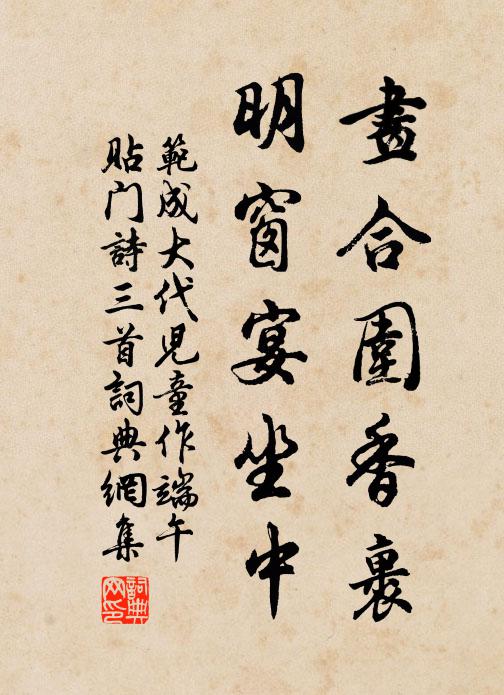 畫合圍香裏
明窗宴坐中
範成大代児童作端午
貼门詩三首詞典網集
詞典网印